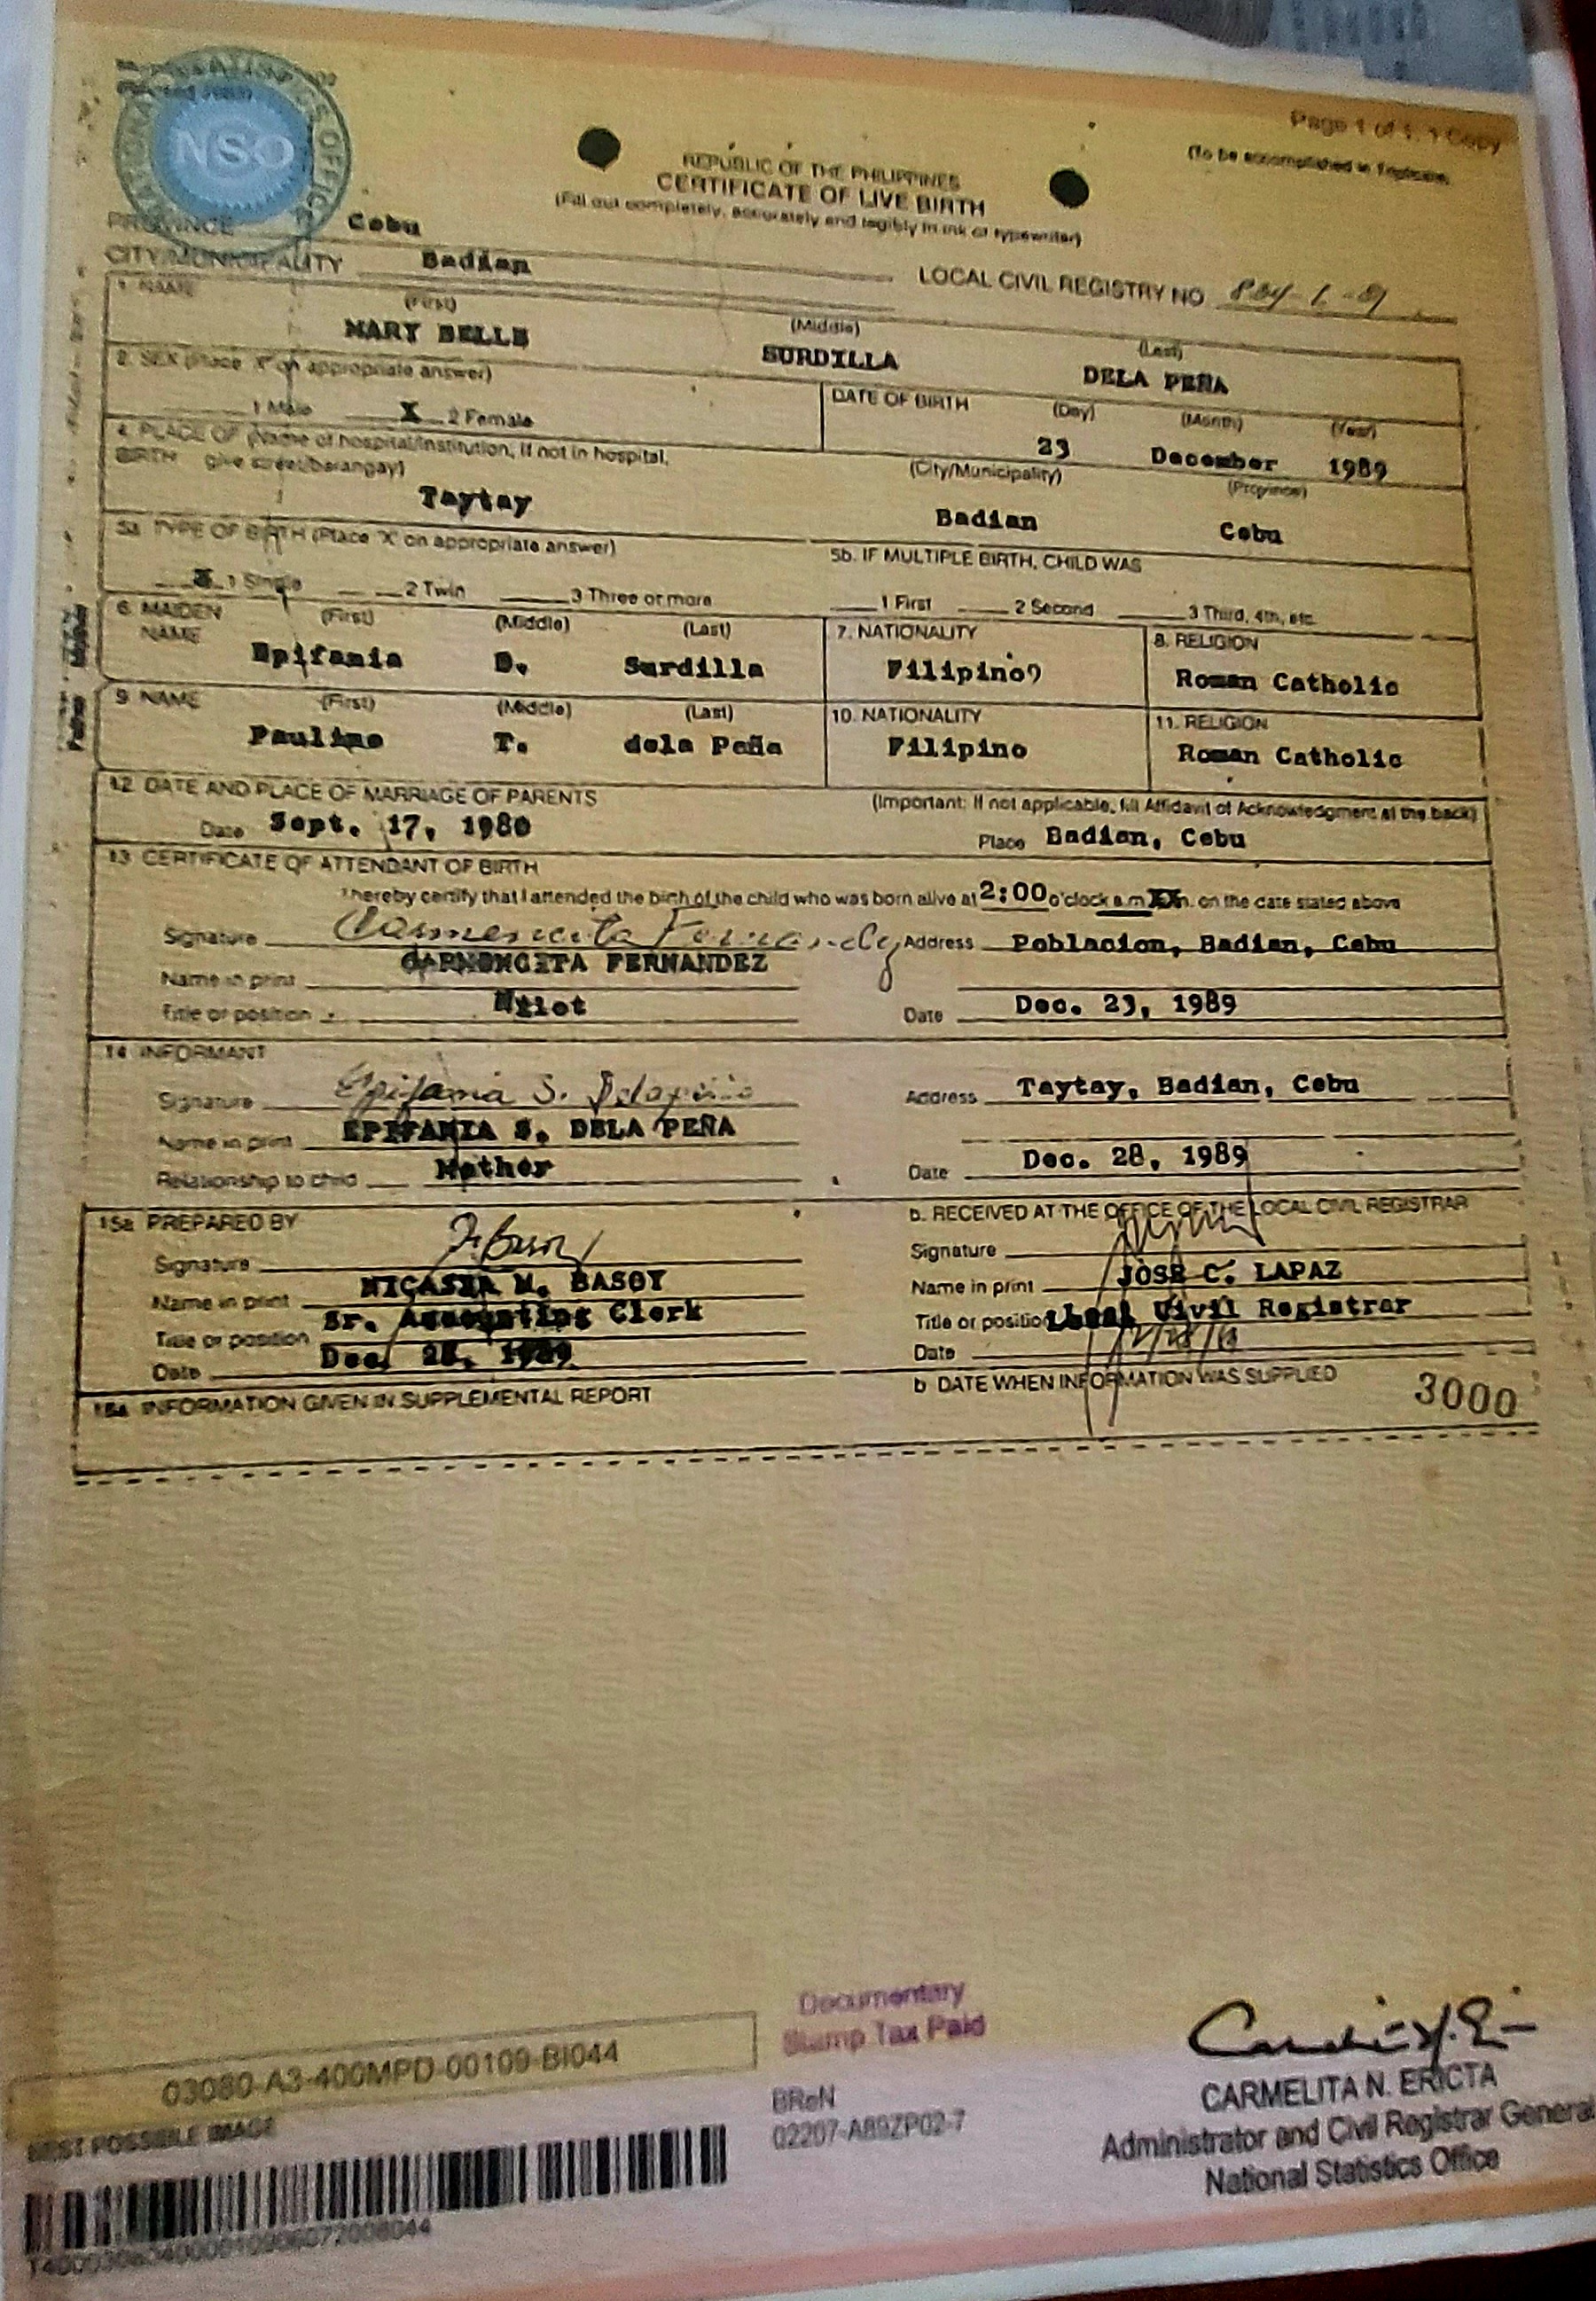 NSO
Page 1 of 1, 1 Copy
(To be accomplished in Triplicate)
REPUBLIC OF THE PHILIPPINES
CERTIFICATE OF LIVE BIRTH
(Fill out completely, accurately and legibly in ink or typewriter)
PROVINCE Cebu
CITY/MUNICIPALITY Badian
LOCAL CIVIL REGISTRY NO
1. NAME (First) (Middle) (Last)
MARY BELLE SURDILLA DELA PEÑA
2. SEX (Place 'X' on appropriate answer)
1 Male X 2 Female
DATE OF BIRTH (Day) (Month) (Year)
23 December 1989
4. PLACE OF (Name of hospital/institution, if not in hospital,
BIRTH give street/barangay) (City/Municipality) (Province)
Taytay Badian Cebu
5a TYPE OF BIRTH (Place 'X' on appropriate answer)
X 1 Single 2 Twin 3 Three or more
5b. IF MULTIPLE BIRTH, CHILD WAS
1 First 2 Second 3 Third, 4th, etc.
Mother
6. MAIDEN NAME (First) (Middle) (Last)
Epifania S. Surdilla
7. NATIONALITY
Filipino
8. RELIGION
Roman Catholic
Father
9 NAME (First) (Middle) (Last)
Paulino T. dela Peña
10. NATIONALITY
Filipino
11. RELIGION
Roman Catholic
12. DATE AND PLACE OF MARRIAGE OF PARENTS (Important: If not applicable, fill Affidavit of Acknowledgment at the back)
Date Sept. 17, 1980 Place Badian, Cebu
13 CERTIFICATE OF ATTENDANT OF BIRTH
I hereby certify that I attended the birth of the child who was born alive at 2:00 o'clock a.m. on the date stated above
Signature Carmencita Fernandez Address Poblacion, Badian, Cebu
Name in print CARMENCITA FERNANDEZ
Title or position Hilot Date Dec. 23, 1989
14 INFORMANT
Signature Epifania S. Delapeña Address Taytay, Badian, Cebu
Name in print EPIFANIA S. DELA PEÑA
Relationship to child Mother Date Dec. 28, 1989
15a PREPARED BY
Signature
Name in print NICASIA M. BASOY
Title or position Sr. Accounting Clerk
Date Dec. 28, 1989
b. RECEIVED AT THE OFFICE OF THE LOCAL CIVIL REGISTRAR
Signature
Name in print JOSE C. LAPAZ
Title or position Local Civil Registrar
Date
16a INFORMATION GIVEN IN SUPPLEMENTAL REPORT
b DATE WHEN INFORMATION WAS SUPPLIED
3000
Documentary
Stamp Tax Paid
03080-A3-400MPD-00109-BI044
BEST POSSIBLE IMAGE
BReN
02207-A89ZP02-7
CARMELITA N. ERICTA
Administrator and Civil Registrar General
National Statistics Office